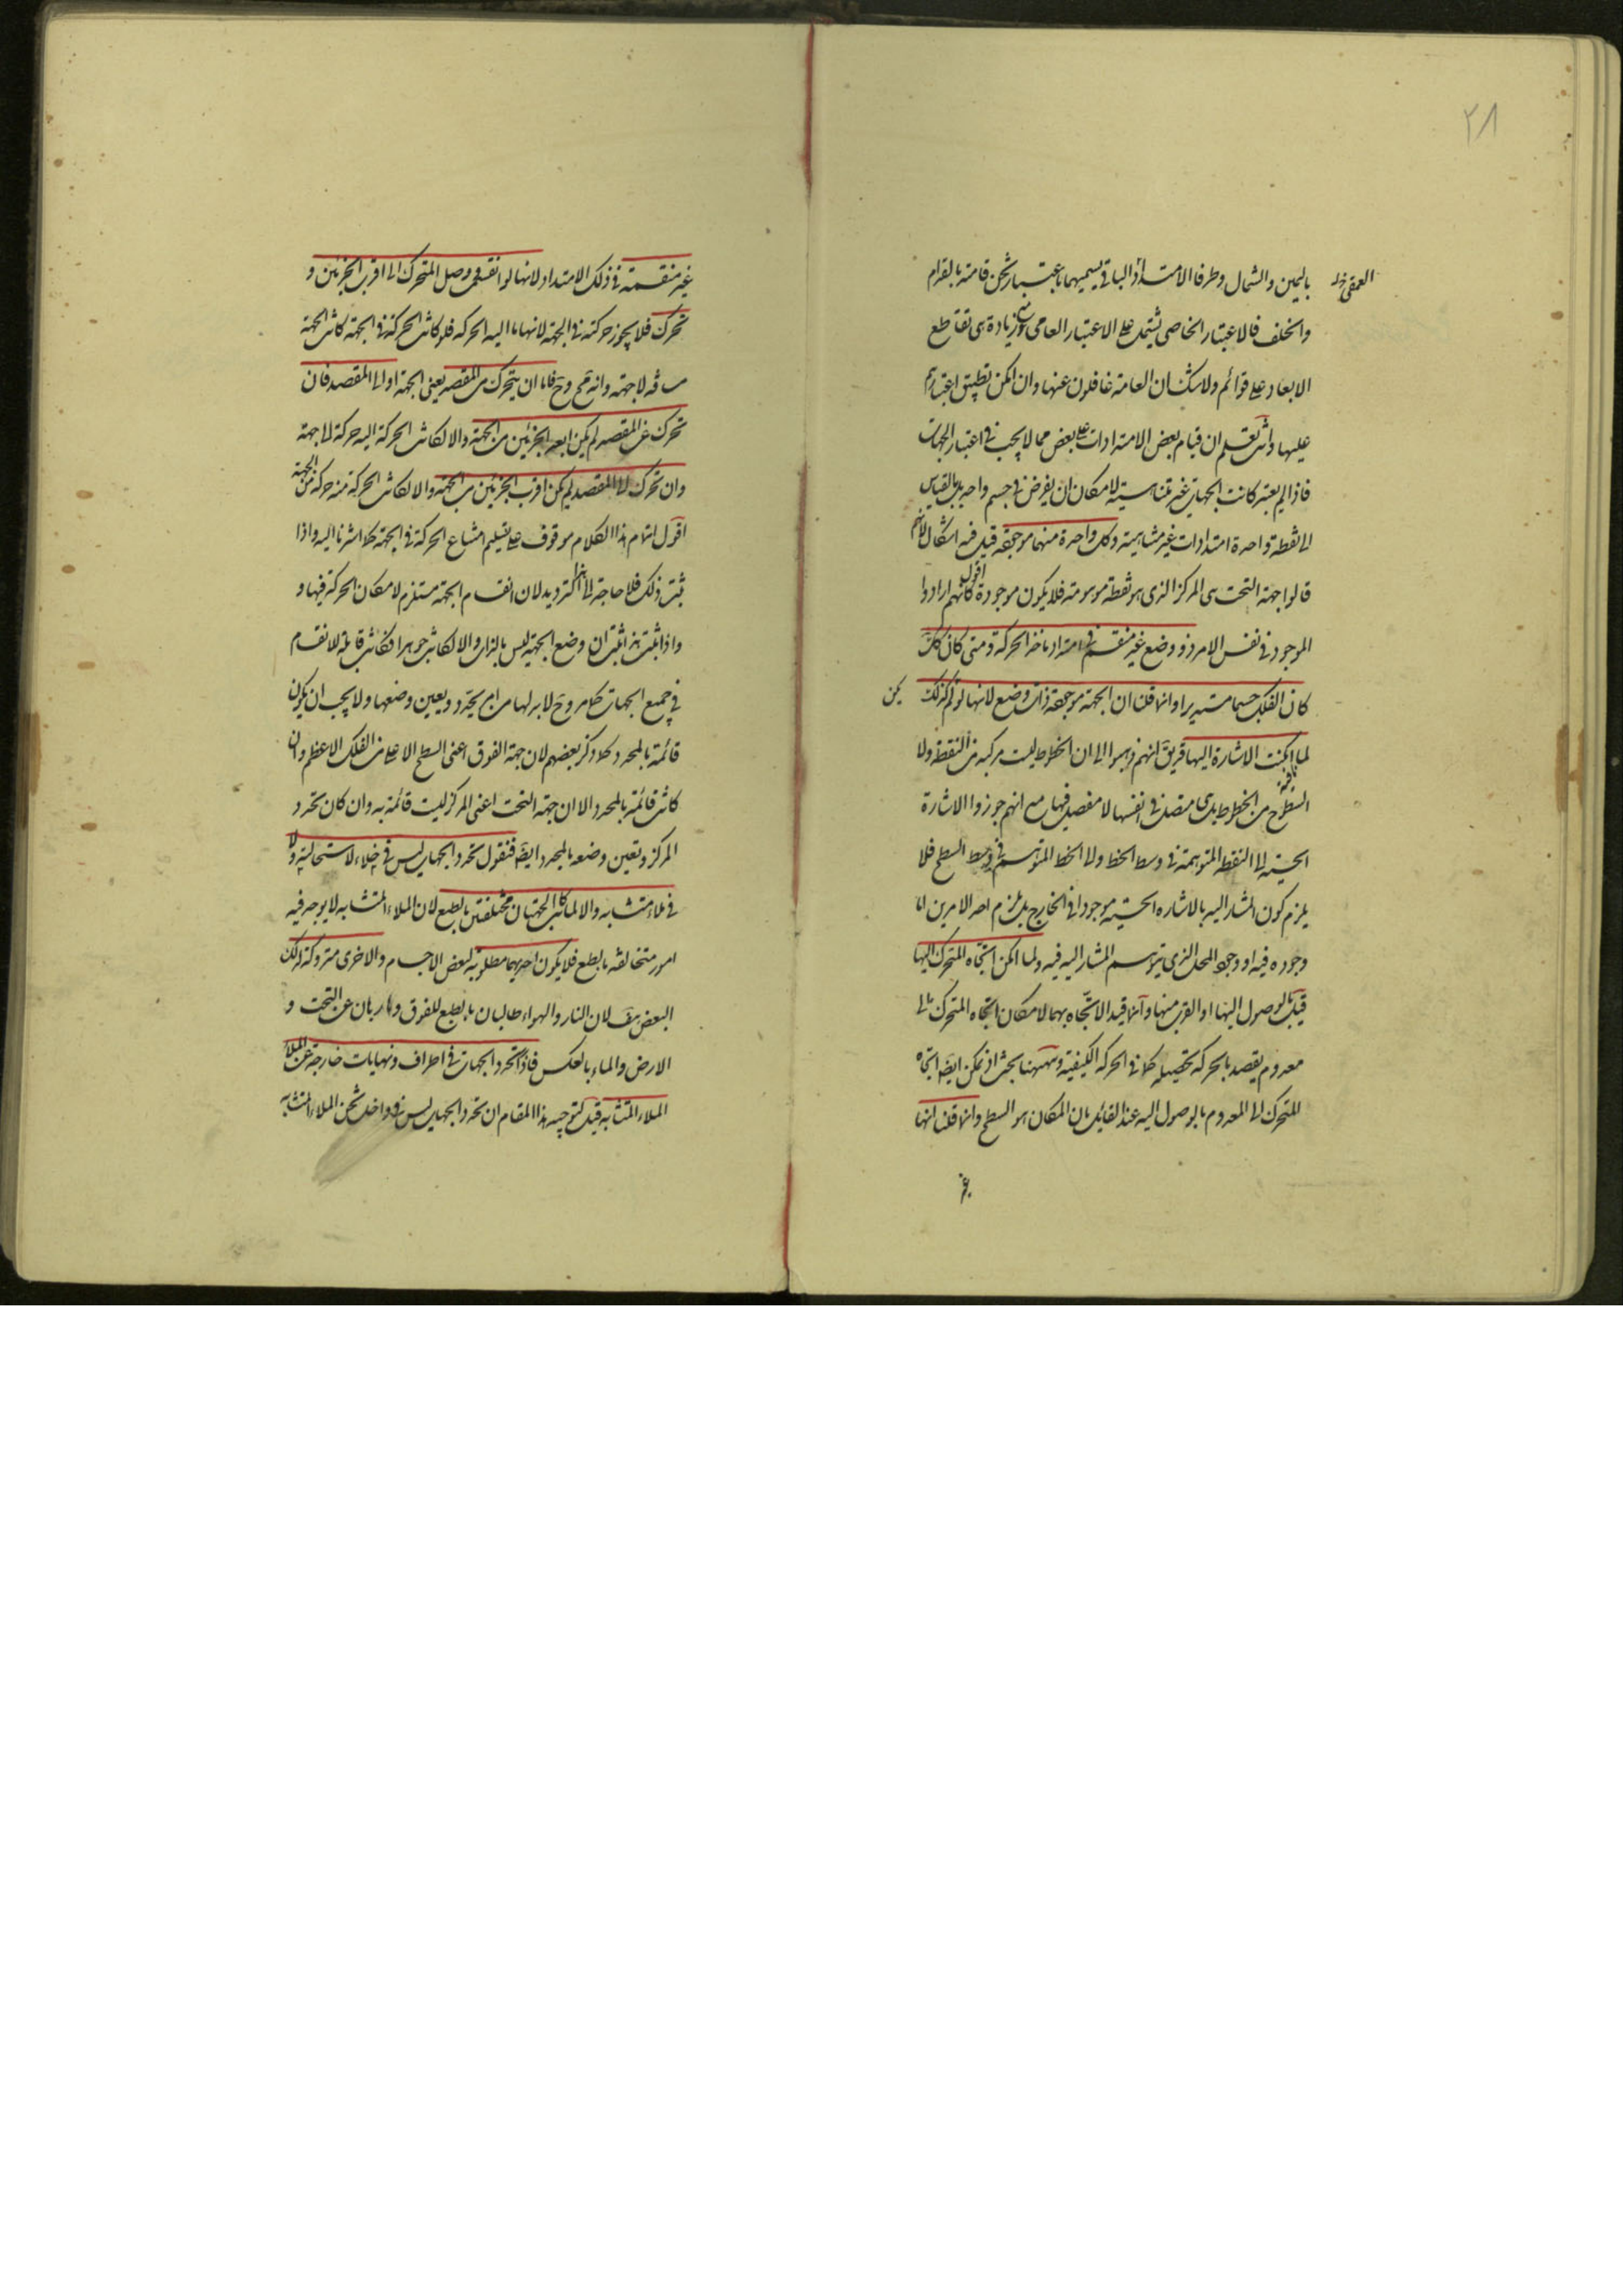 ٢٨
باليمين والشمال وطرفا الامتداد الباقي يسميهما باعتبار ثخن قامته بالقدام
العمقى
والخلف فالاعتبار الخاصى يشتمل على الاعتبار العامى مع زيادة هى تقاطع
الابعاد على قوائم ولا شك ان العامة غافلون عنها وان امكن تطبيق اعتبارهم
عليها وانت تعلم ان قيام بعض الامتدادات على بعض مما لا يجب فى اعتبار الجهات
فاذا لم يعتبر كانت الجهات غير متناهية لامكان ان يفرض فى جسم واحد بل بالقياس
الى نقطة واحدة امتدادات غير متناهية وكل واحدة منهما موجودة قيل فيه اشكال لانهم
قالوا جهة التحت هى المركز الذى هو نقطة موهومة فلا يكون موجودة اقول كانهم ارادوا
الموجود فى نفس الامر ذو وضع غير منقسم فى امتداد ماخذ الحركة ومتى كان كك
كان الفلك جسما مستديرا وانما قلنا ان الجهة موجودة ذات وضع لانها لو لم يكن كذلك
لما امكنت الاشارة اليها قيل انهم ذهبوا الى ان الخطوط ليست مركبة من النقطة ولا
السطوح من الخطوط بل هى متصلة فى انفسها لا مفصل فيها مع انهم جوزوا الاشارة
الحسية الى النقطة المتوهمة فى وسط الخط والى الخط المتوهم فى وسط السطح فلا
يلزم كون المشار اليه بالاشارة الحسية موجودا فى الخارج بل يلزم احد الامرين اما
وجوده فيه او وجود المحل الذى يتوهم المشار اليه فيه ولما امكن اتجاه المتحرك اليها
قيل بالوصول اليها او القرب منها وانما قيد الاتجاه بهما لامكان اتجاه المتحرك الى
معدوم يقصد بالحركة تحصيله كما فى الحركة الكيفية وههنا بحث اذ يمكن ايضا اتجاه
المتحرك الى المعدوم بالوصول اليه عند القائل بان المكان هو السطح وانما قلنا انها
غير
غير منقسمة فى ذلك الامتداد لانها لو انقسمت وصل المتحرك الى اقرب الجزئين و
تحرك فلا يجوز حركته فى الجهة لانها ما اليه الحركة فلو كانت الحركة فى الجهة كانت الجهة
مسافة لا جهة وانه مح وح فاما ان يتحرك من المقصد يعنى الجهة او الى المقصد فان
تحرك عن المقصد لم يكن ابعد الجزئين من الجهة والا لكانت الحركة اليه حركة الى الجهة
وان تحرك الى المقصد لم يكن اقرب الجزئين من الجهة والا لكانت الحركة منه حركة من الجهة
اقول اتمام هذا الكلام موقوف على تسليم امتناع الحركة فى الجهة كما اشرنا اليه واذا
ثبت ذلك فلا حاجة الى هذا الترديد لان انقسام الجهة مستلزم لامكان الحركة فيها و
واذا ثبت هذا ثبت ان وضع الجهة ليس بالذات والا لكانت جوهرا فكانت قابلة للانقسام
فى جميع الجهات كما مر وح لا بد لها من امر يحدد ويعين وضعها ولا يجب ان يكون
قائمة بالمحدد كما ذكر بعضهم لان جهة الفوق اعنى السطح الاعلى من الفلك الاعظم وان
كانت قائمة بالمحدد الا ان جهة التحت اعنى المركز ليست قائمة به وان كان تحدد
المركز وتعين وضعه بالمحدد ايضا فنقول تحدد الجهات ليس فى خلاء لاستحالته ولا
فى ملاء متشابه والا لما كانت الجهتان مختلفتين بالطبع لان الملاء المتشابه لا يوجد فيه
امور متخالفة بالطبع فلا يكون احديهما مطلوبة لبعض الاجسام والاخرى متروكة لذلك
البعض هف لان النار والهواء طالبان بالطبع للفوق وهاربان عن التحت و
الارض والماء بالعكس فاذا تحدد الجهات فى اطراف ونهايات خارجة عن الملاء
الملاء المتشابه قيل توجيه هذا المقام ان تحدد الجهات ليس فى داخل ثخن الملاء المتشابه